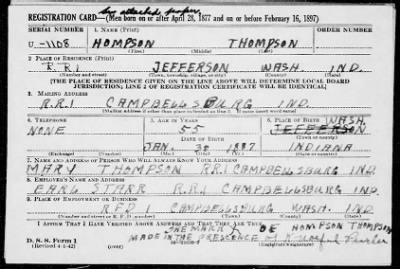 by attached paper
REGISTRATION CARD—(Men born on or after April 28, 1877 and on or before February 16, 1897)
SERIAL NUMBER 1. NAME (Print) ORDER NUMBER
U-1108 HOMPSON THOMPSON
(First) (Middle) (Last)
2. PLACE OF RESIDENCE (Print)
R.R1 JEFFERSON WASH. IND.
(Number and street) (Town, township, village, or city) (County) (State)
[THE PLACE OF RESIDENCE GIVEN ON THE LINE ABOVE WILL DETERMINE LOCAL BOARD
JURISDICTION; LINE 2 OF REGISTRATION CERTIFICATE WILL BE IDENTICAL]
3. MAILING ADDRESS
R.R.1 CAMPBELLSBURG IND.
4. TELEPHONE 5. AGE IN YEARS 6. PLACE OF BIRTH
NONE 55 WASH.
JEFFERSON
DATE OF BIRTH
JAN. 30 1887 INDIANA
7. NAME AND ADDRESS OF PERSON WHO WILL ALWAYS KNOW YOUR ADDRESS
MARY THOMPSON RR.1 CAMPBELLSBURG IND.
8. EMPLOYER'S NAME AND ADDRESS
EARL STARR R.R.1 CAMPBELLSBURG IND.
9. PLACE OF EMPLOYMENT OR BUSINESS
RFD 1 CAMPBELLSBURG WASH. IND.
(Number and street or R. F. D. number) (Town) (County) (State)
I AFFIRM THAT I HAVE VERIFIED ABOVE ANSWERS AND THAT THEY ARE TRUE.
THE MARK X OF HOMPSON THOMPSON
D. S. S. Form 1 MADE IN THE PRESCENCE
(Revised 4-1-42)